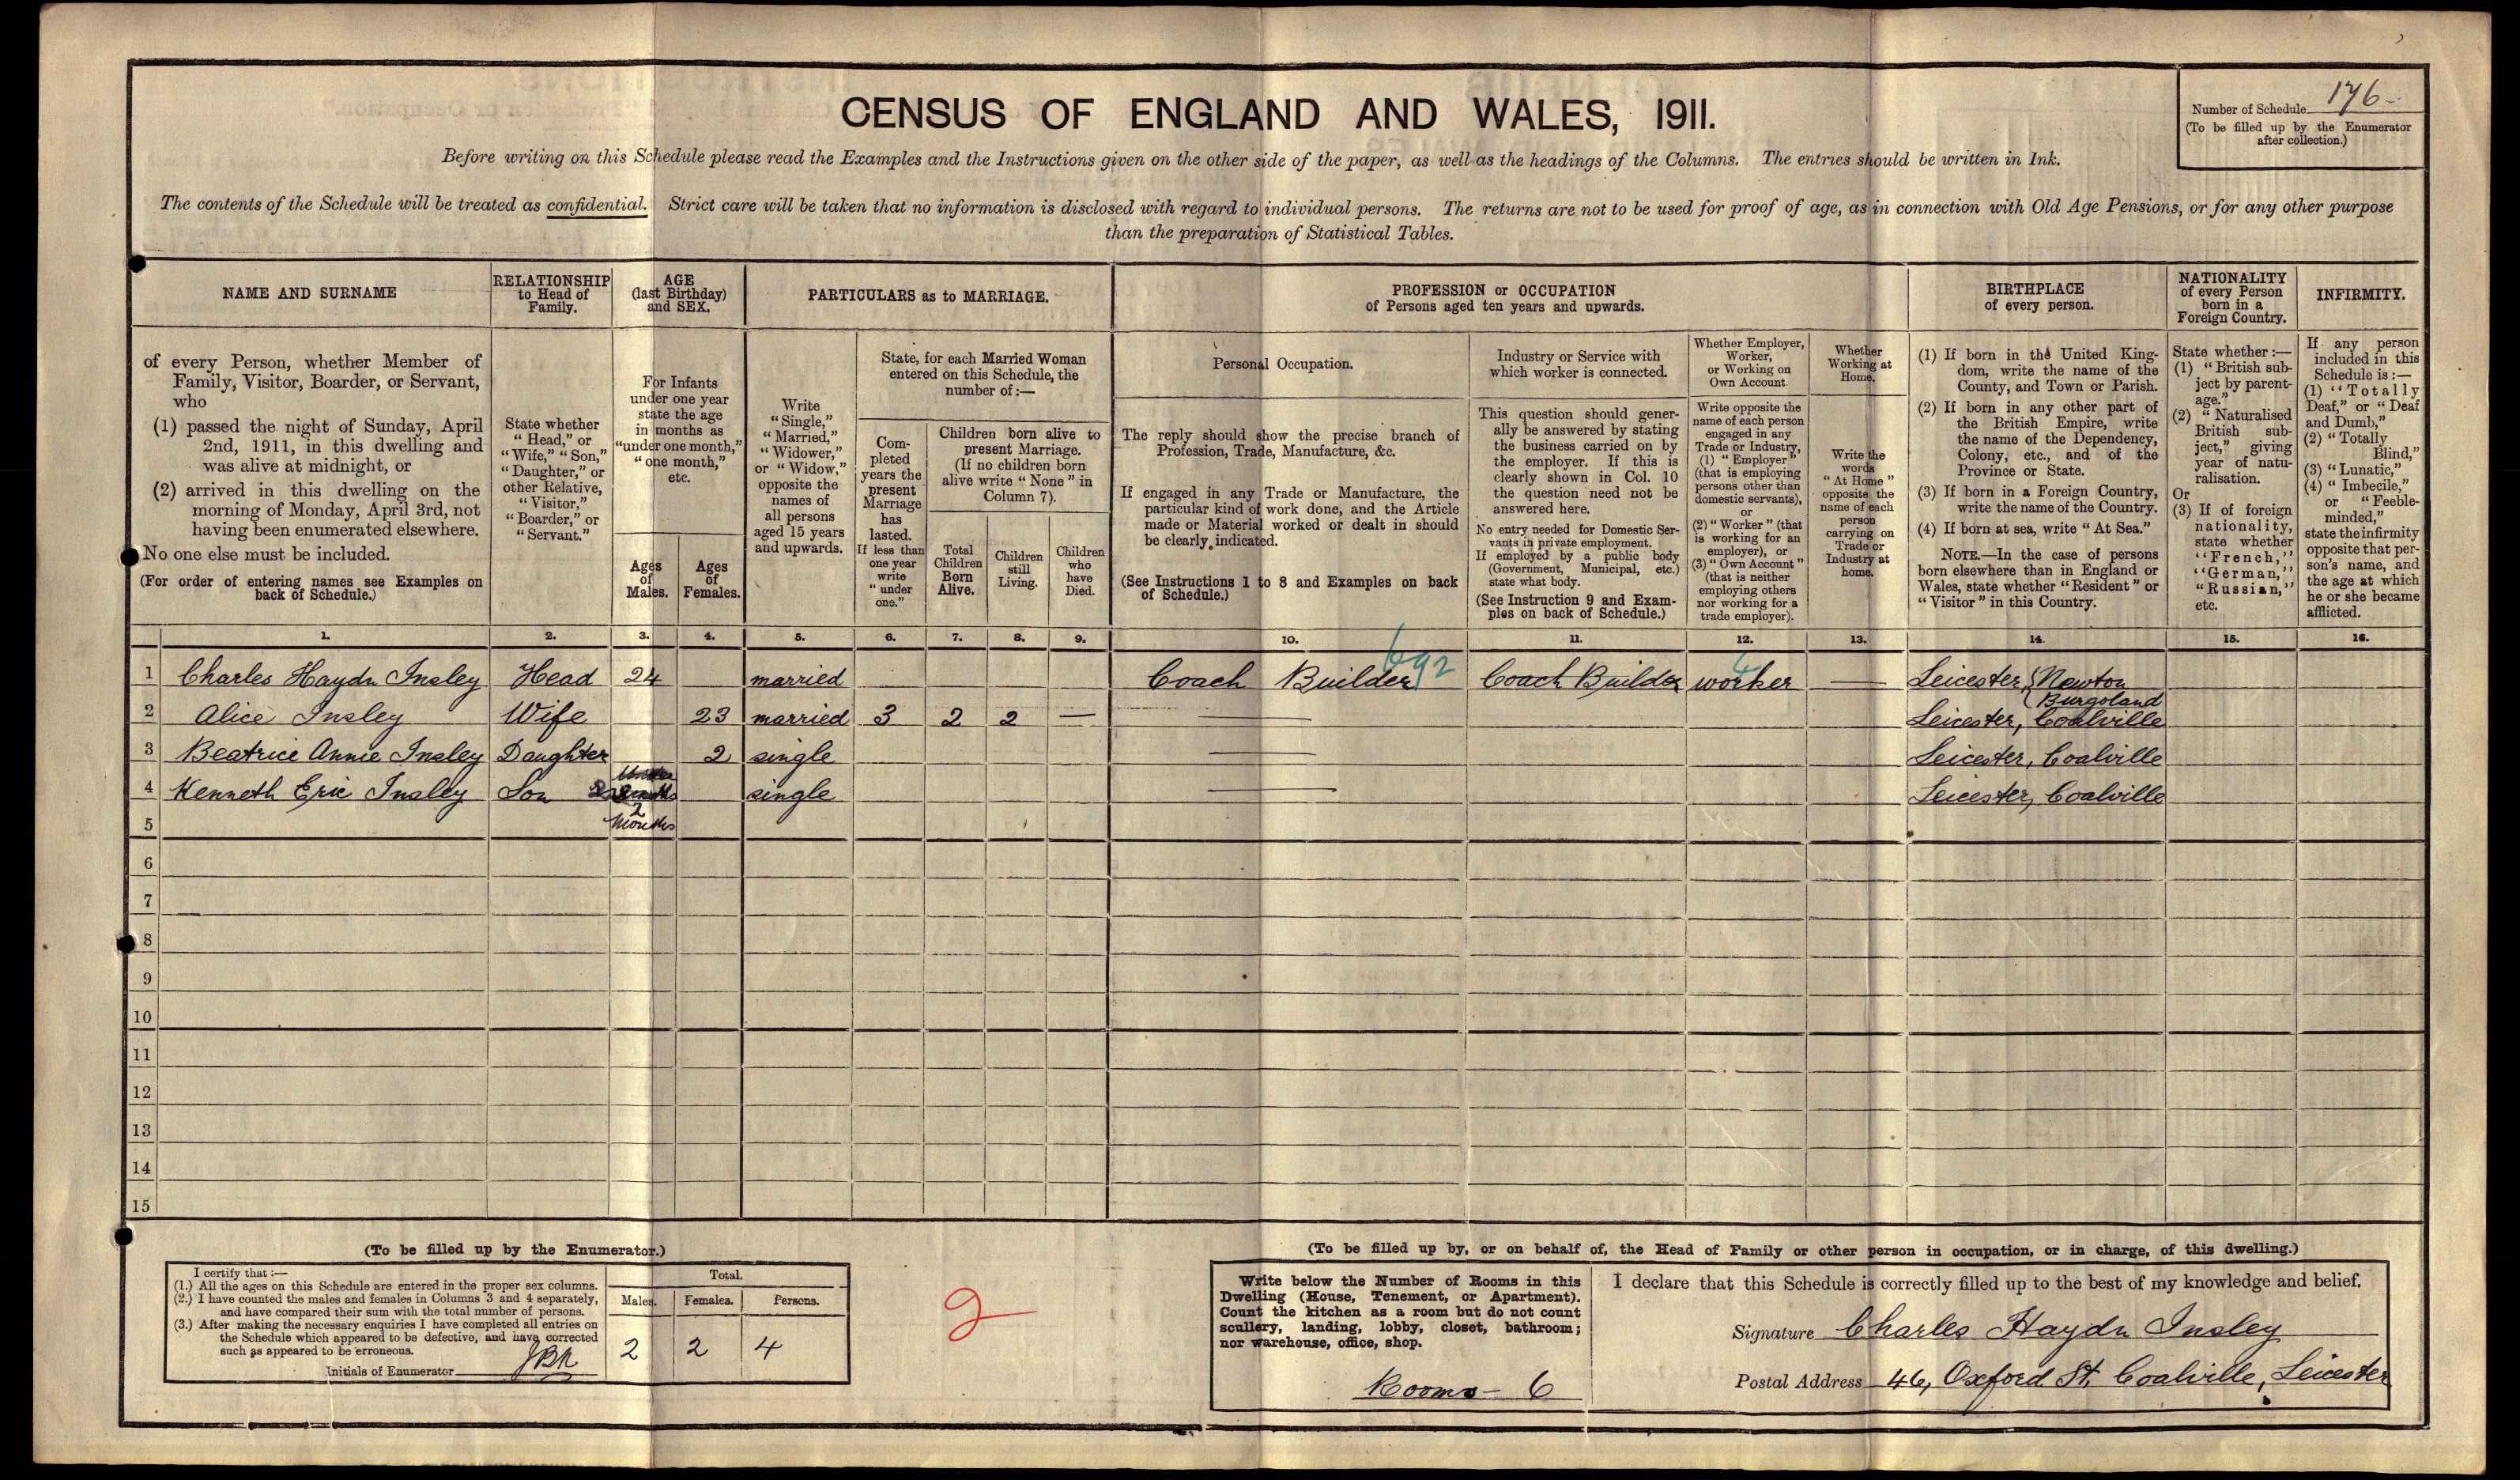 Number of Schedule 176
(To be filled up by the Enumerator
after collection.)
CENSUS OF ENGLAND AND WALES, 1911.
Before writing on this Schedule please read the Examples and the Instructions given on the other side of the paper, as well as the headings of the Columns. The entries should be written in Ink.
The contents of the Schedule will be treated as confidential. Strict care will be taken that no information is disclosed with regard to individual persons. The returns are not to be used for proof of age, as in connection with Old Age Pensions, or for any other purpose
than the preparation of Statistical Tables.
NAME AND SURNAME
of every Person, whether Member of
Family, Visitor, Boarder, or Servant,
who
(1) passed the night of Sunday, April
2nd, 1911, in this dwelling and
was alive at midnight, or
(2) arrived in this dwelling on the
morning of Monday, April 3rd, not
having been enumerated elsewhere.
No one else must be included.
(For order of entering names see Examples on
back of Schedule.)
RELATIONSHIP
to Head of
Family.
State whether
"Head," or
"Wife," "Son,"
"Daughter," or
other Relative,
"Visitor,"
"Boarder," or
"Servant."
AGE
(last Birthday)
and SEX.
For Infants
under one year
state the age
in months as
"under one month,"
"one month,"
etc.
Ages
of
Males.
Ages
of
Females.
PARTICULARS as to MARRIAGE.
Write
"Single,"
"Married,"
"Widower,"
or "Widow,"
opposite the
names of
all persons
aged 15 years
and upwards.
State, for each Married Woman
entered on this Schedule, the
number of :—
Com-
pleted
years the
present
Marriage
has
lasted.
If less than
one year
write
"under
one."
Children born alive to
present Marriage.
(If no children born
alive write "None" in
Column 7).
Total
Children
Born
Alive.
Children
still
Living.
Children
who
have
Died.
PROFESSION or OCCUPATION
of Persons aged ten years and upwards.
Personal Occupation.
The reply should show the precise branch of
Profession, Trade, Manufacture, &c.
If engaged in any Trade or Manufacture, the
particular kind of work done, and the Article
made or Material worked or dealt in should
be clearly indicated.
(See Instructions 1 to 8 and Examples on back
of Schedule.)
Industry or Service with
which worker is connected.
This question should gener-
ally be answered by stating
the business carried on by
the employer. If this is
clearly shown in Col. 10
the question need not be
answered here.
No entry needed for Domestic Ser-
vants in private employment.
If employed by a public body
(Government, Municipal, etc.)
state what body.
(See Instruction 9 and Exam-
ples on back of Schedule.)
Whether Employer,
Worker,
or Working on
Own Account.
Write opposite the
name of each person
engaged in any
Trade or Industry,
(1) "Employer"
(that is employing
persons other than
domestic servants),
or
(2) "Worker" (that
is working for an
employer), or
(3) "Own Account"
(that is neither
employing others
nor working for a
trade employer).
Whether
Working at
Home.
Write the
words
"At Home"
opposite the
name of each
person
carrying on
Trade or
Industry at
home.
BIRTHPLACE
of every person.
(1) If born in the United King-
dom, write the name of the
County, and Town or Parish.
(2) If born in any other part of
the British Empire, write
the name of the Dependency,
Colony, etc., and of the
Province or State.
(3) If born in a Foreign Country,
write the name of the Country.
(4) If born at sea, write "At Sea."
NOTE.—In the case of persons
born elsewhere than in England or
Wales, state whether "Resident" or
"Visitor" in this Country.
NATIONALITY
of every Person
born in a
Foreign Country.
State whether :—
(1) "British sub-
ject by parent-
age."
(2) "Naturalised
British sub-
ject," giving
year of natu-
ralisation.
Or
(3) If of foreign
nationality,
state whether
"French,"
"German,"
"Russian,"
etc.
INFIRMITY.
If any person
included in this
Schedule is :—
(1) "Totally
Deaf," or "Deaf
and Dumb,"
(2) "Totally
Blind,"
(3) "Lunatic,"
(4) "Imbecile,"
or "Feeble-
minded,"
state the infirmity
opposite that per-
son's name, and
the age at which
he or she became
afflicted.
1. 2. 3. 4. 5. 6. 7. 8. 9. 10. 11. 12. 13. 14. 15. 16.
692 4
1 Charles Haydn Insley Head 24 married Coach Builder Coach Builder worker — Leicester, Newton
Burgoland
2 Alice Insley Wife 23 married 3 2 2 — — Leicester, Coalville
3 Beatrice Annie Insley Daughter 2 single — Leicester, Coalville
4 Kenneth Eric Insley Son single — Leicester, Coalville
2
Months
5
6
7
8
9
10
11
12
13
14
15
(To be filled up by the Enumerator.)
I certify that :—
(1.) All the ages on this Schedule are entered in the proper sex columns.
(2.) I have counted the males and females in Columns 3 and 4 separately,
and have compared their sum with the total number of persons.
(3.) After making the necessary enquiries I have completed all entries on
the Schedule which appeared to be defective, and have corrected
such as appeared to be erroneous.
Initials of Enumerator
Total.
Males. Females. Persons.
2 2 4
2
(To be filled up by, or on behalf of, the Head of Family or other person in occupation, or in charge, of this dwelling.)
Write below the Number of Rooms in this
Dwelling (House, Tenement, or Apartment).
Count the kitchen as a room but do not count
scullery, landing, lobby, closet, bathroom;
nor warehouse, office, shop.
Rooms - 6
I declare that this Schedule is correctly filled up to the best of my knowledge and belief.
Signature Charles Haydn Insley
Postal Address 46, Oxford St, Coalville, Leicester